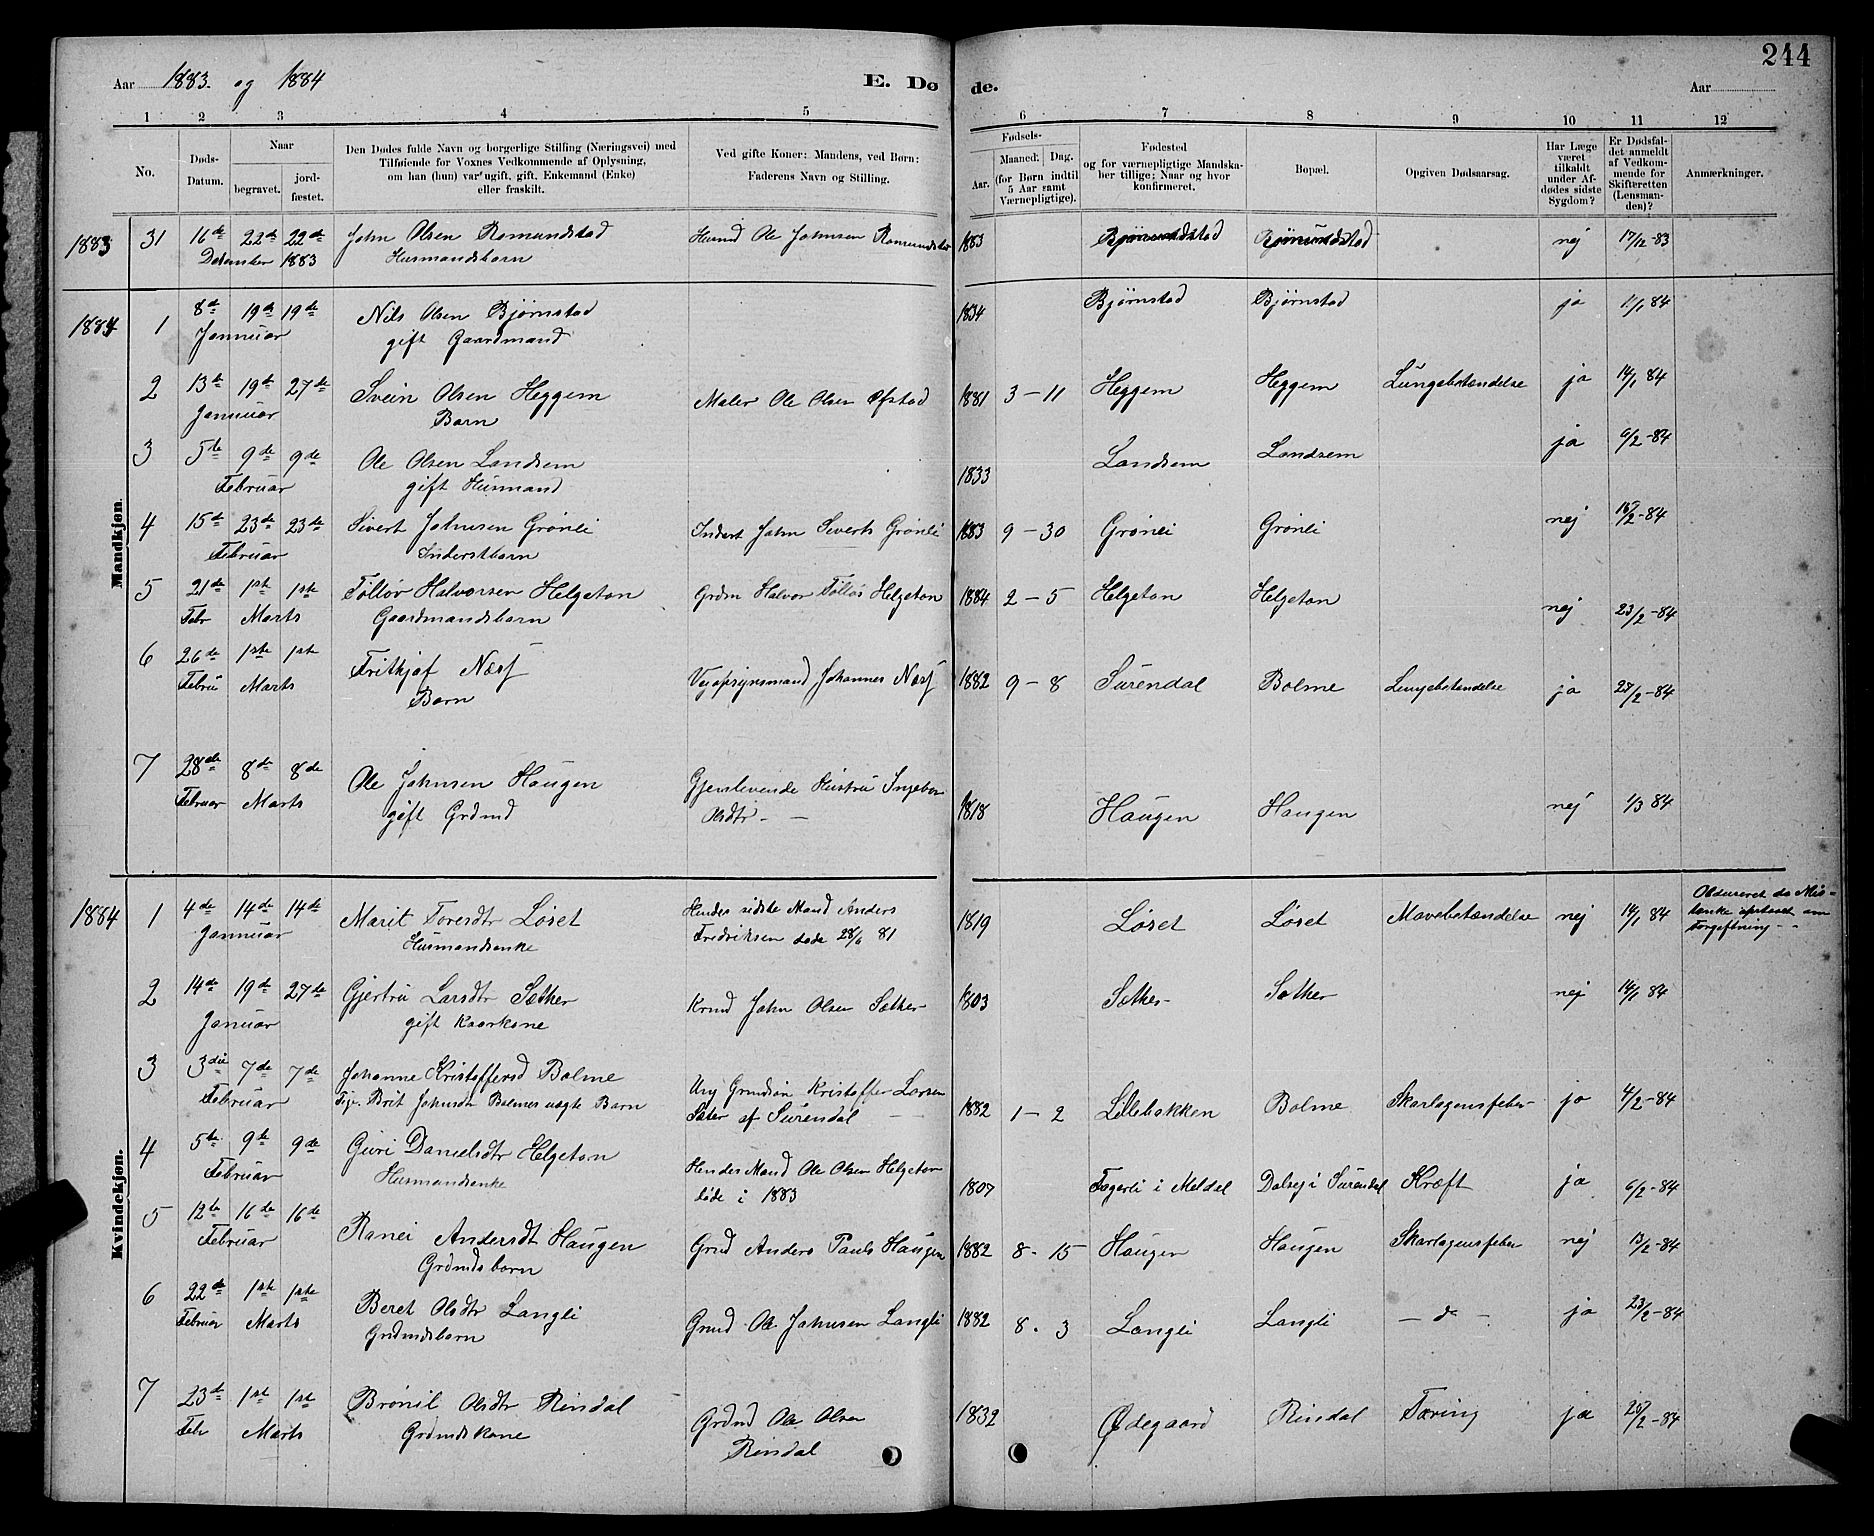 244
Aar 1883 og 1884
E. Dø de.
Aar
1 2 3 4 5 6 7 8 9 10 11 12
No.
Døds-
Datum.
Naar
begravet.
jord-
fæstet.
Den Dødes fulde Navn og borgerlige Stilling (Næringsvei) med
Tilføiende for Voxnes Vedkommende af Oplysning,
om han (hun) var ugift, gift, Enkemand (Enke)
eller fraskilt.
Ved gifte Koner: Mandens, ved Børn:
Faderens Navn og Stilling.
Fødsels-
Aar.
Maaned. Dag.
(for Børn indtil
5 Aar samt
Værnepligtige).
Fødested
og for værnepligtige Mandska-
ber tillige: Naar og hvor
konfirmeret.
Bopæl.
Opgiven Dødsaarsag.
Har Læge
været
tilkaldt
under Af-
dødes sidste
Sygdom?
Er Dødsfal-
det anmeldt
af Vedkom-
mende for
Skifteretten
(Lensman-
den)?
Anmærkninger.
Mandkjøn.
1883 31 16de 22de 22de John Olsen Romundstad Husmd Ole Johnsen Romundstad 1883 nej 17/12-83
December 1883 Husmandsbarn
1884 1 8de 19de 19de Nils Olsen Bjørnstad 1834 Bjørnstad Bjørnstad ja 11/1 84
Januar gift Gaardmand
2 13de 19de 27de Svein Olsen Heggem Maler Ole Olsen Øfstad 1881 3-11 Heggem Heggem Lungebetændelse ja 14/1 84
Januar Barn
3 5te 9de 9de Ole Olsen Landsem 1833 Landsem Landsem ja 6/2-84
Februar gift Husmand
4 15de 23de 23de Sivert Johnsen Grønli Inderst John Siverts Grønli 1883 9-30 Grønli Grønli nej 16/2-84
Februar Inderstbarn
5 21de 1ste 1ste Tølløv Halvorsen Helgeton Grdm Halvor Tølløs Helgeton 1884 2-5 Helgeton Helgeton nej 23/2-84
Febr Marts Gaardmandsbarn
6 26de 1ste 1ste Fritkjof Næss Vejopsynsmand Johannes Næss 1882 9-8 Surendal Bolme Lungebetændelse ja 28/2-84
Februar Marts Barn
7 28de 8de 8de Ole Johnsen Haugen Gjenlevende Hustru Ingebor 1818 Haugen Haugen nej 1/3 84
Februar Marts gift Grdmd Olsdtr
Kvindekjøn.
1884 1 4de 14de 14de Marit Toresdtr Løset Hendes sidste Mand Anders 1819 Løset Løset Mavebetændelse nej 14/1 84 Obduceret da Mis-
Januar Husmandsenke Fredriksen døde 28/6 81 tanke opstaaet om
Forgiftning
2 14de 19de 27de Gjertru Larsdtr Sæther John Olsen Sæther 1803 Sæther Sæther nej 14/1 84
Januar gift Kaarkone
3 3die 7de 7de Johanne Kristoffersd Bolme Ung Kristoffer Larsen 1882 1-2 Lillebakken Bolme Skarlagensfeber ja 4/2-84
Februar Brit Johnsdr Bolmes uægte Barn Sæter af Surendal
4 5te 9de 9de Guri Danielsdtr Helgeton Hendes Mand Ole Olsen Helgeton 1807 Fagerli i Meldal Dalsej i Surendal Kræft ja 6/2-84
Februar Husmandsenke døde i 1883
5 12te 16de 16de Ranei Andersdt Haugen Grmd Anders Pauls Haugen 1882 8-15 Haugen Haugen Skarlagensfeber nej 13/2-84
Februar Grdmdsbarn
6 22de 1ste 1ste Beret Olsdtr Langli Grmd Ole Johnsen Langli 1882 8-3 Langli Langli - do - ja 23/2-84
Februar Marts Grdmdsbarn
7 23de 1ste 1ste Brønil Olsdtr Rindal Grdmd Ole Olsen 1832 Ødegaard Rindal Tæring ja 26/2-84
Feb Marts Grdmdskone Rindal